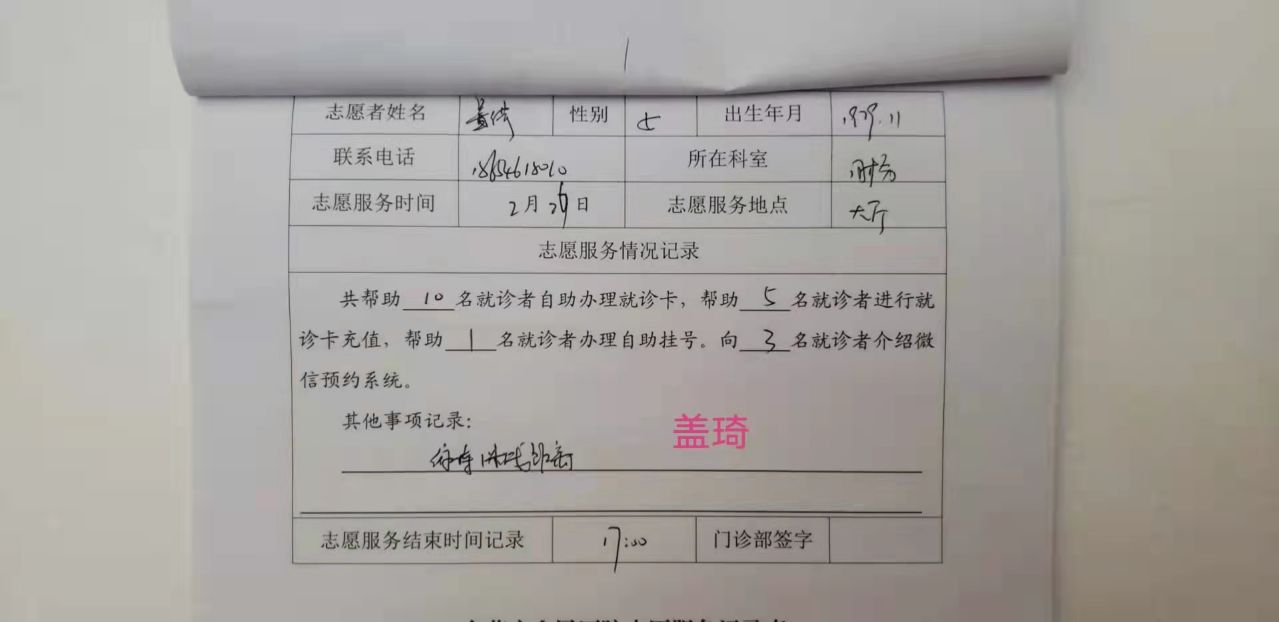 志愿者姓名 盖琦 性别 女 出生年月 1979.11
联系电话 18654618010 所在科室 财务
志愿服务时间 2月26日 志愿服务地点 大厅
志愿服务情况记录
共帮助 10 名就诊者自助办理就诊卡，帮助 5 名就诊者进行就
诊卡充值，帮助 1 名就诊者办理自助挂号。向 3 名就诊者介绍微
信预约系统。
其他事项记录：
盖琦
志愿服务结束时间记录 17:00 门诊部签字